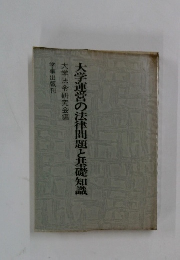 大学運営の法律問題と基礎知識
大学法令研究会編
学事出版刊